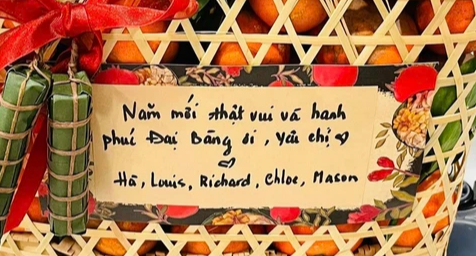 Năm mới thật vui và hạnh
phúc Đại Bàng ơi, yêu chị
Hà, Louis, Richard, Chloe, Mason